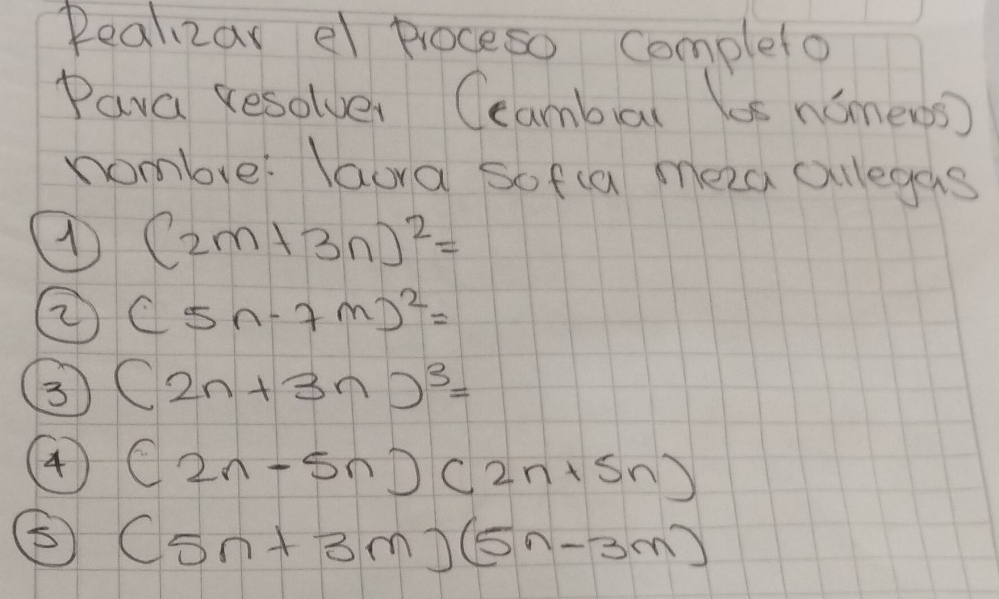 Realizar el Proceso Completo
Para resolver (cambiar los números)
nombre: laura sofia meza
① (2m+3n)²=
② (5n-7m)²=
③ (2n+3n)³=
④ (2n-5n)(2n+5n)
⑤ (5n+3m)(5n-3m)